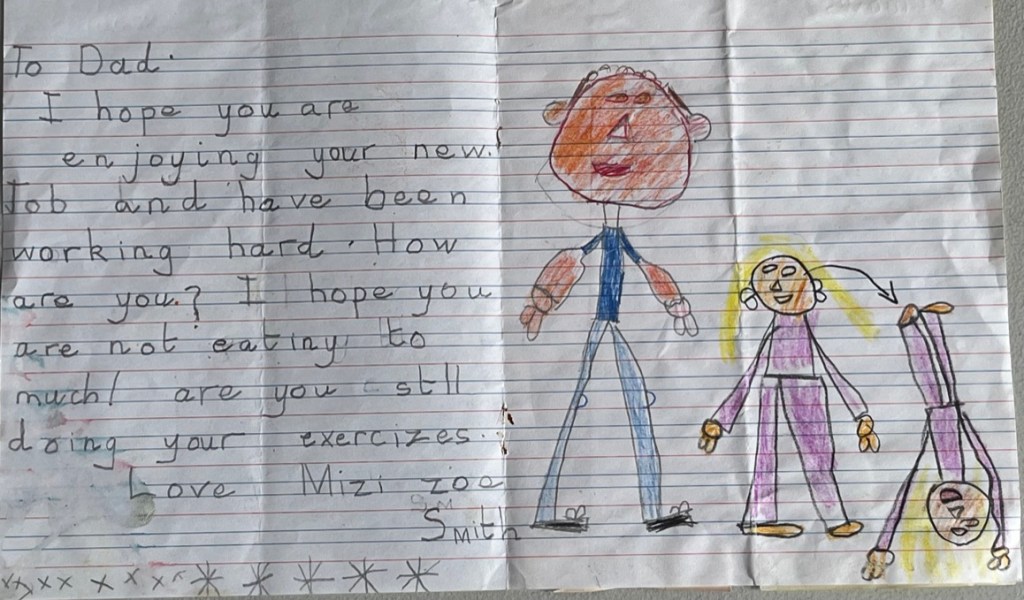 To Dad.
I hope you are
enjoying your new
Job and have been
working hard. How
are you.? I hope you
are not eating to
much! are you still
doing your exercizes.
Love Mizi zoe
Smith
xxxx x x x x